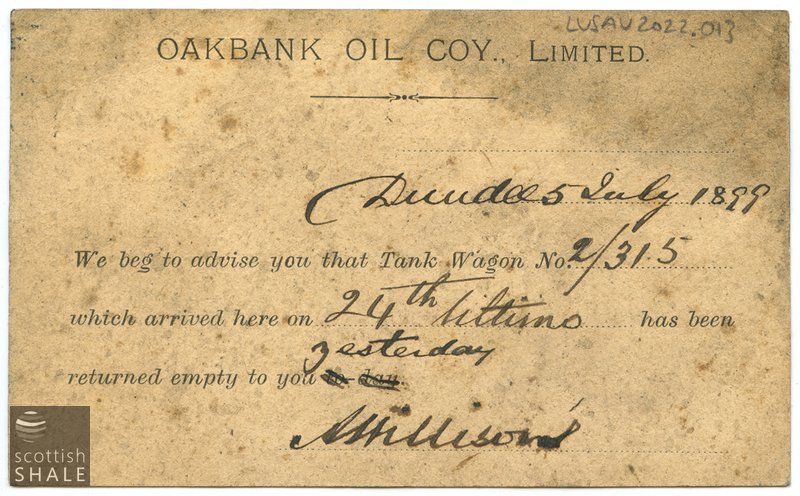 LVSAV2022.013
OAKBANK OIL COY., LIMITED.
Dundee 5 July 1899
We beg to advise you that Tank Wagon No. 2/315
which arrived here on 24th ultimo has been
yesterday
returned empty to you to-day.
scottish
SHALE